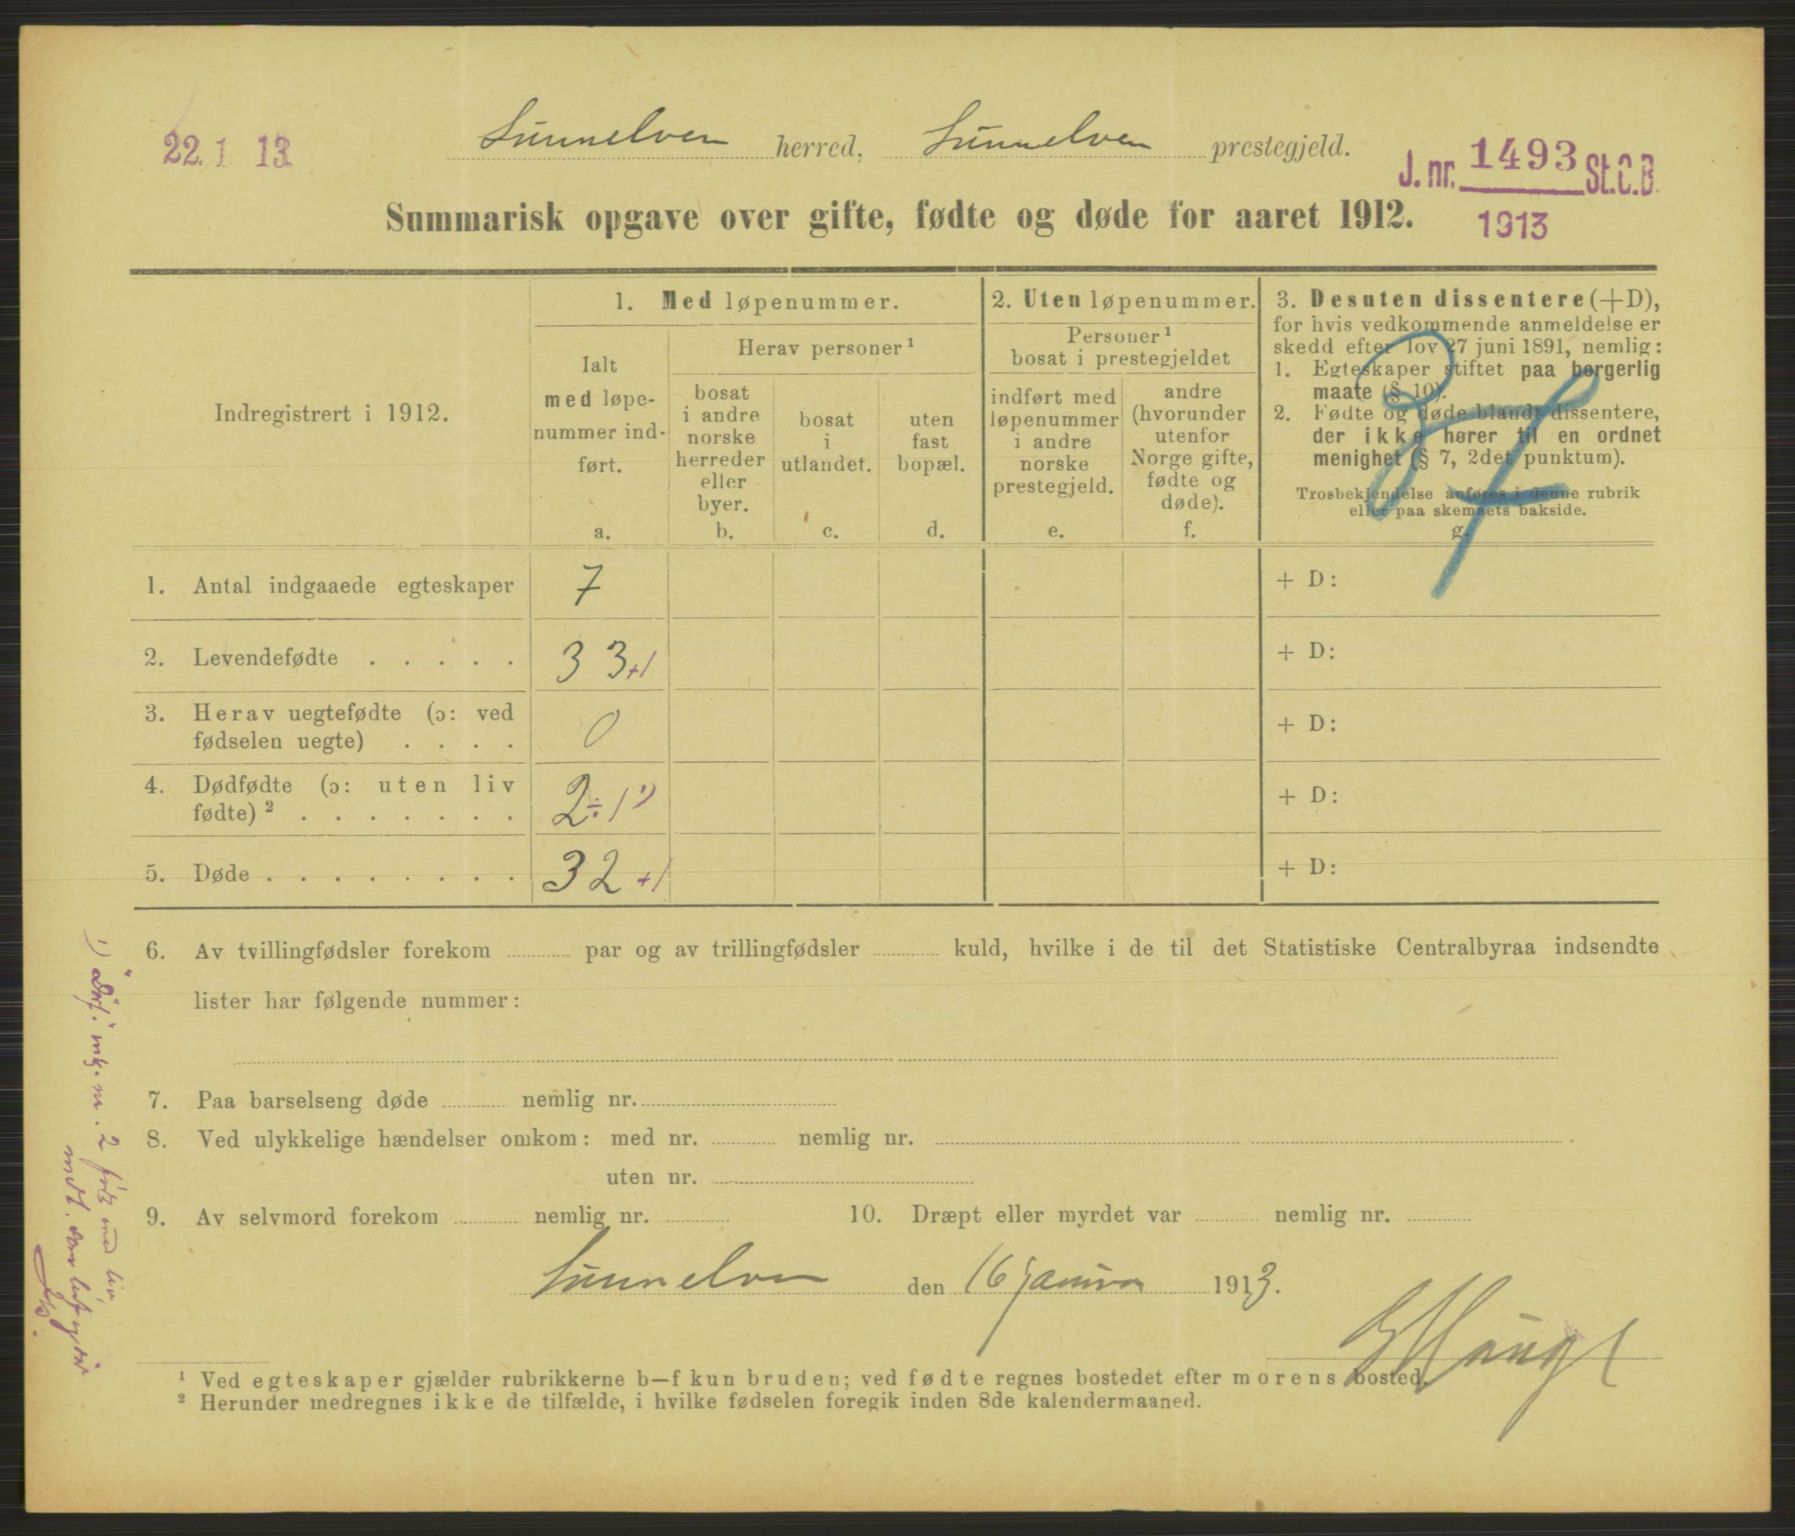 22. 1 13
Sunnelven herred, Sunnelven prestegjeld.
J. nr. 1493 St.C.B.
1913
Summarisk opgave over gifte, fødte og døde for aaret 1912.
Indregistrert i 1912.
1. Med løpenummer.
Ialt
med løpe-
nummer ind-
ført.
a.
Herav personer ¹
bosat
i andre
norske
herreder
eller
byer.
b.
bosat
i
utlandet.
c.
uten
fast
bopæl.
d.
2. Uten løpenummer.
Personer ¹
bosat i prestegjeldet
indført med
løpenummer
i andre
norske
prestegjeld.
e.
andre
(hvorunder
utenfor
Norge gifte,
fødte og
døde).
f.
3. Desuten dissentere (+D),
for hvis vedkommende anmeldelse er
skedd efter lov 27 juni 1891, nemlig:
1. Egteskaper stiftet paa borgerlig
maate (§ 10).
2. Fødte og døde blandt dissentere,
der ikke hører til en ordnet
menighet (§ 7, 2det punktum).
Trosbekjendelse anføres i denne rubrik
eller paa skemaets bakside.
g.
1. Antal indgaaede egteskaper 7 + D:
2. Levendefødte . . . . . 33 +1 + D:
3. Herav uegtefødte (ɔ: ved
fødselen uegte) . . . . 0 + D:
4. Dødfødte (ɔ: uten liv
fødte) ² . . . . . . . 2 ÷ 1 ¹) + D:
5. Døde . . . . . . . . 32 +1 + D:
6. Av tvillingfødsler forekom par og av trillingfødsler kuld, hvilke i de til det Statistiske Centralbyraa indsendte
lister har følgende nummer:
7. Paa barselseng døde nemlig nr.
8. Ved ulykkelige hændelser omkom: med nr. nemlig nr.
uten nr.
9. Av selvmord forekom nemlig nr. 10. Dræpt eller myrdet var nemlig nr.
Sunnelven den 16 januar 1913.
¹ Ved egteskaper gjælder rubrikkerne b—f kun bruden; ved fødte regnes bostedet efter morens bosted.
² Herunder medregnes ikke de tilfælde, i hvilke fødselen foregik inden 8de kalendermaaned.